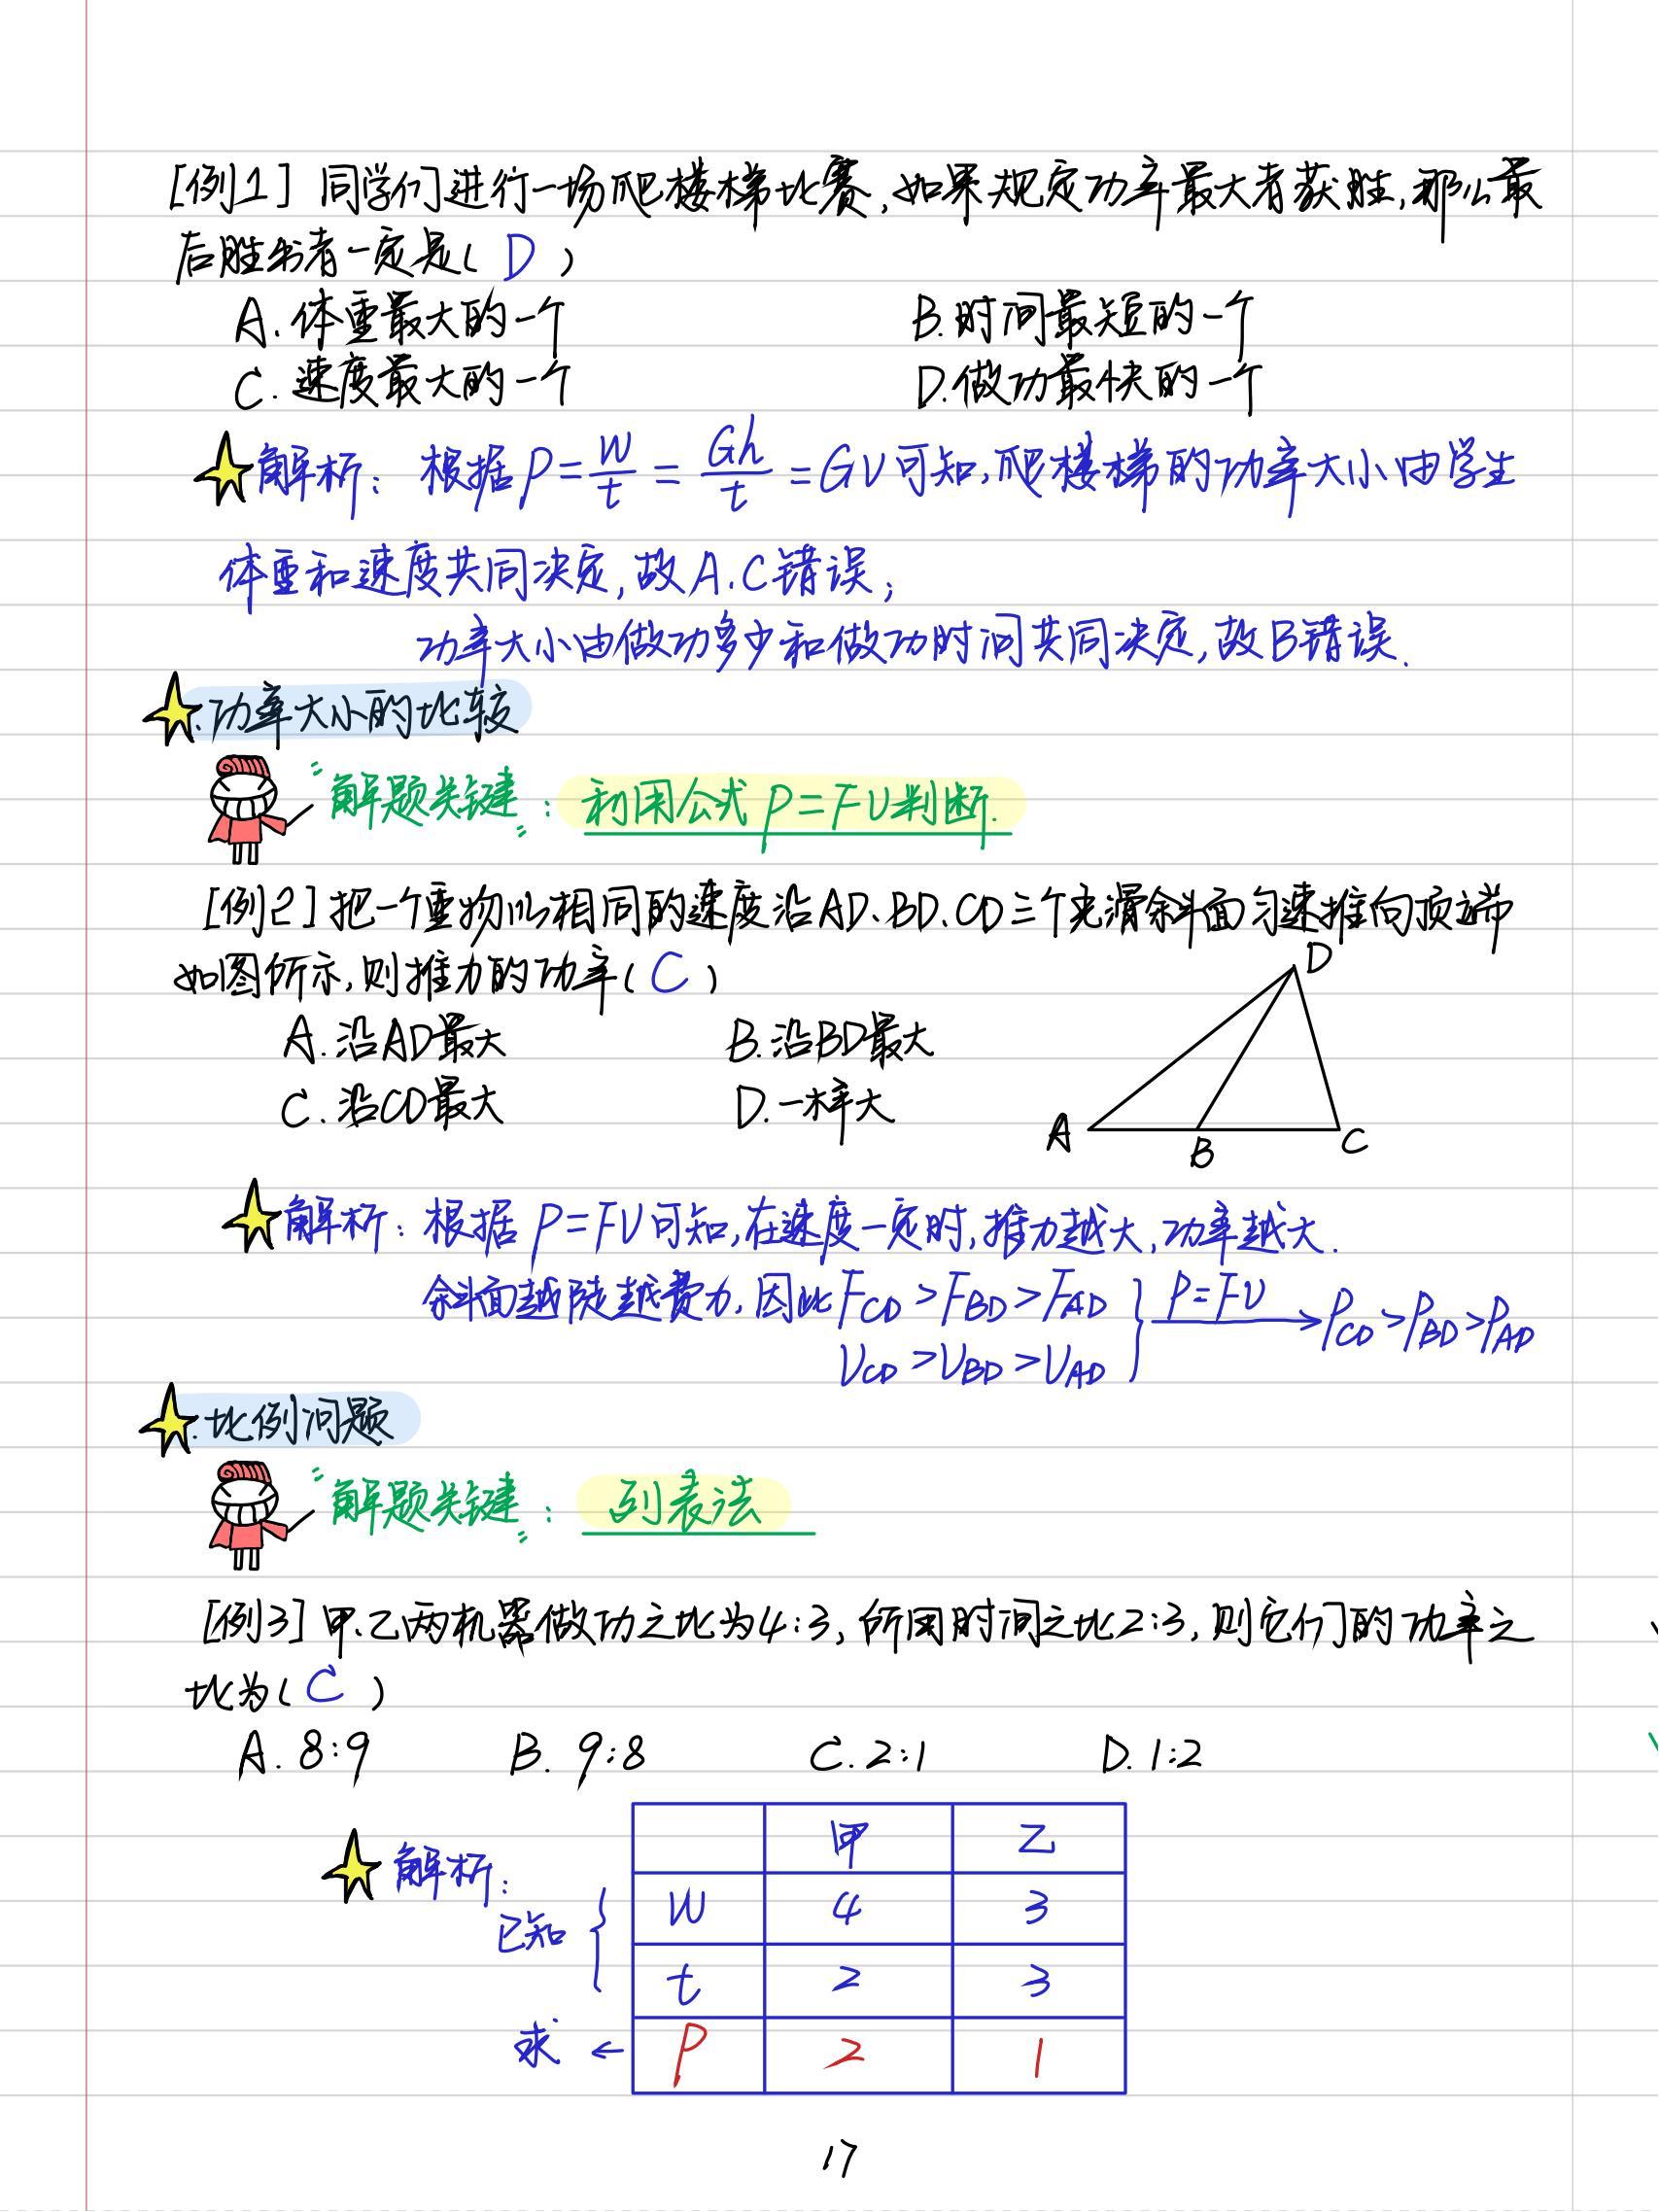 [例1] 同学们进行一场爬楼梯比赛,如果规定功率最大者获胜,那么最
后胜出者一定是( D )
A.体重最大的一个 B.时间最短的一个
C.速度最大的一个 D.做功最快的一个
解析: 根据P=W/t=Gh/t=GV可知,爬楼梯的功率大小由学生
体重和速度共同决定,故A.C错误;
功率大小由做功多少和做功时间共同决定,故B错误.
功率大小的比较
"解题关键": 利用公式P=FV判断.
[例2]把一个重物以相同的速度沿AD、BD、CD三个光滑斜面匀速推向顶端
如图所示,则推力的功率( C )
D
A.沿AD最大 B.沿BD最大
C.沿CD最大 D.一样大
A B C
解析: 根据P=FV可知,在速度一定时,推力越大,功率越大.
斜面越陡越费力,因此F_CD>F_BD>F_AD } P=FV → P_CD>P_BD>P_AD
V_CD>V_BD>V_AD
比例问题
"解题关键": 列表法
[例3]甲、乙两机器做功之比为4:3,所用时间之比2:3,则它们的功率之
比为( C )
A. 8:9 B. 9:8 C. 2:1 D. 1:2
解析: 甲 乙
已知 { W 4 3
t 2 3
求 ← P 2 1
17